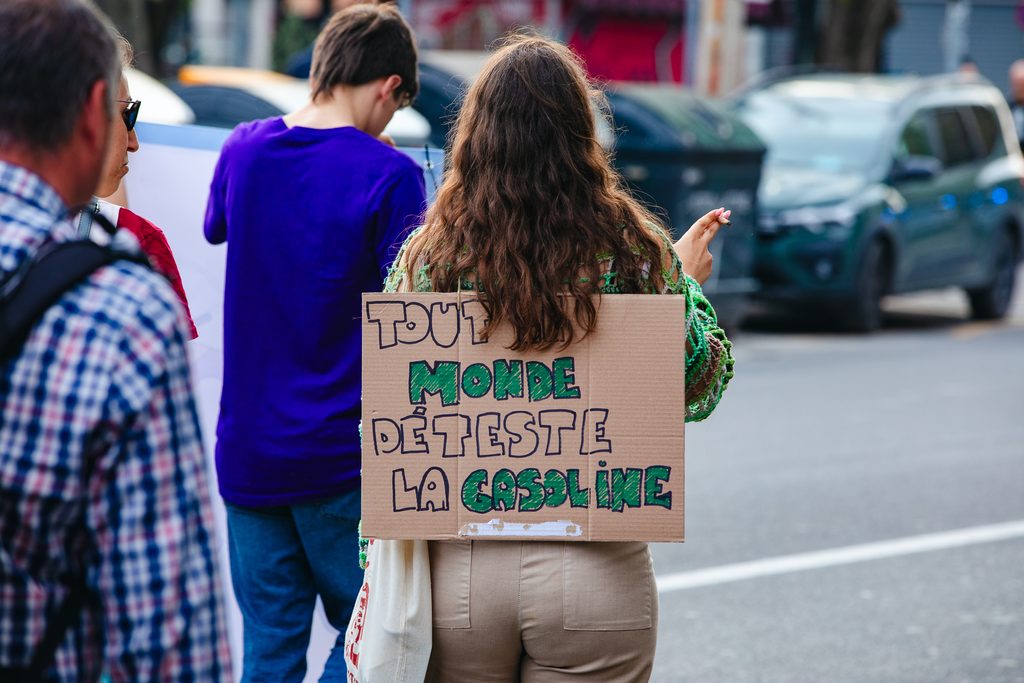 TOUT
MONDE
DÉTESTE
LA GASOLINE